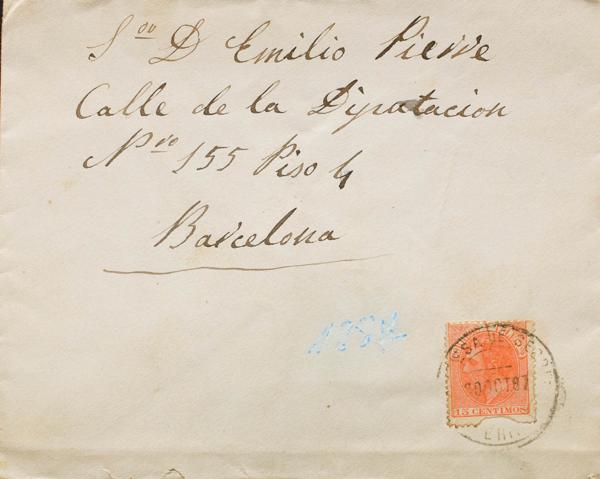 Sor D Emilio Pierre
Calle de la Diputacion
Nro 155 Piso 4
Barcelona
15 CENTIMOS